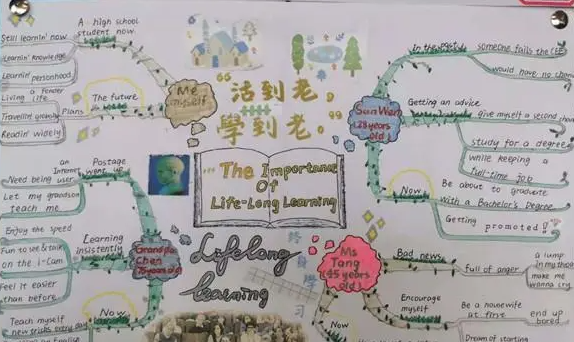 A high school
student now
Still learnin' now
Learnin' knowledge
Learnin' personhood
Me
myself
The future
Plans
Living a fender
life
Travellin' globally
Readin' widely
“活到老，
學到老。”
The Importance
Of
Life-Long Learning
Lifelong
learning
終身學习
Sun Wen
(28 years
old)
In the past
someone fails the CEE
would have no chan
Getting an advice
give myself a second chan
study for a degree
while keeping a
full-time job
Now
Be about to graduate
with a Bachelor's Degree
Getting promoted!
Grandpa
Chen
75 years old
Postage
went up
an
Internet
user
Need being
Let my grandson
teach me
Learning
insistently
Enjoy the speed
Fun to see & talk
on the i-Cam
Feel it easier
than before
Now
Teach myself
new tricks every day
Ms
Tang
(45 years
old)
Bad news
full of anger
a lump
in my throat
make me
wanna cry
Encourage
myself
Be a housewife
at first
end up
bored
Now
Dream of starting